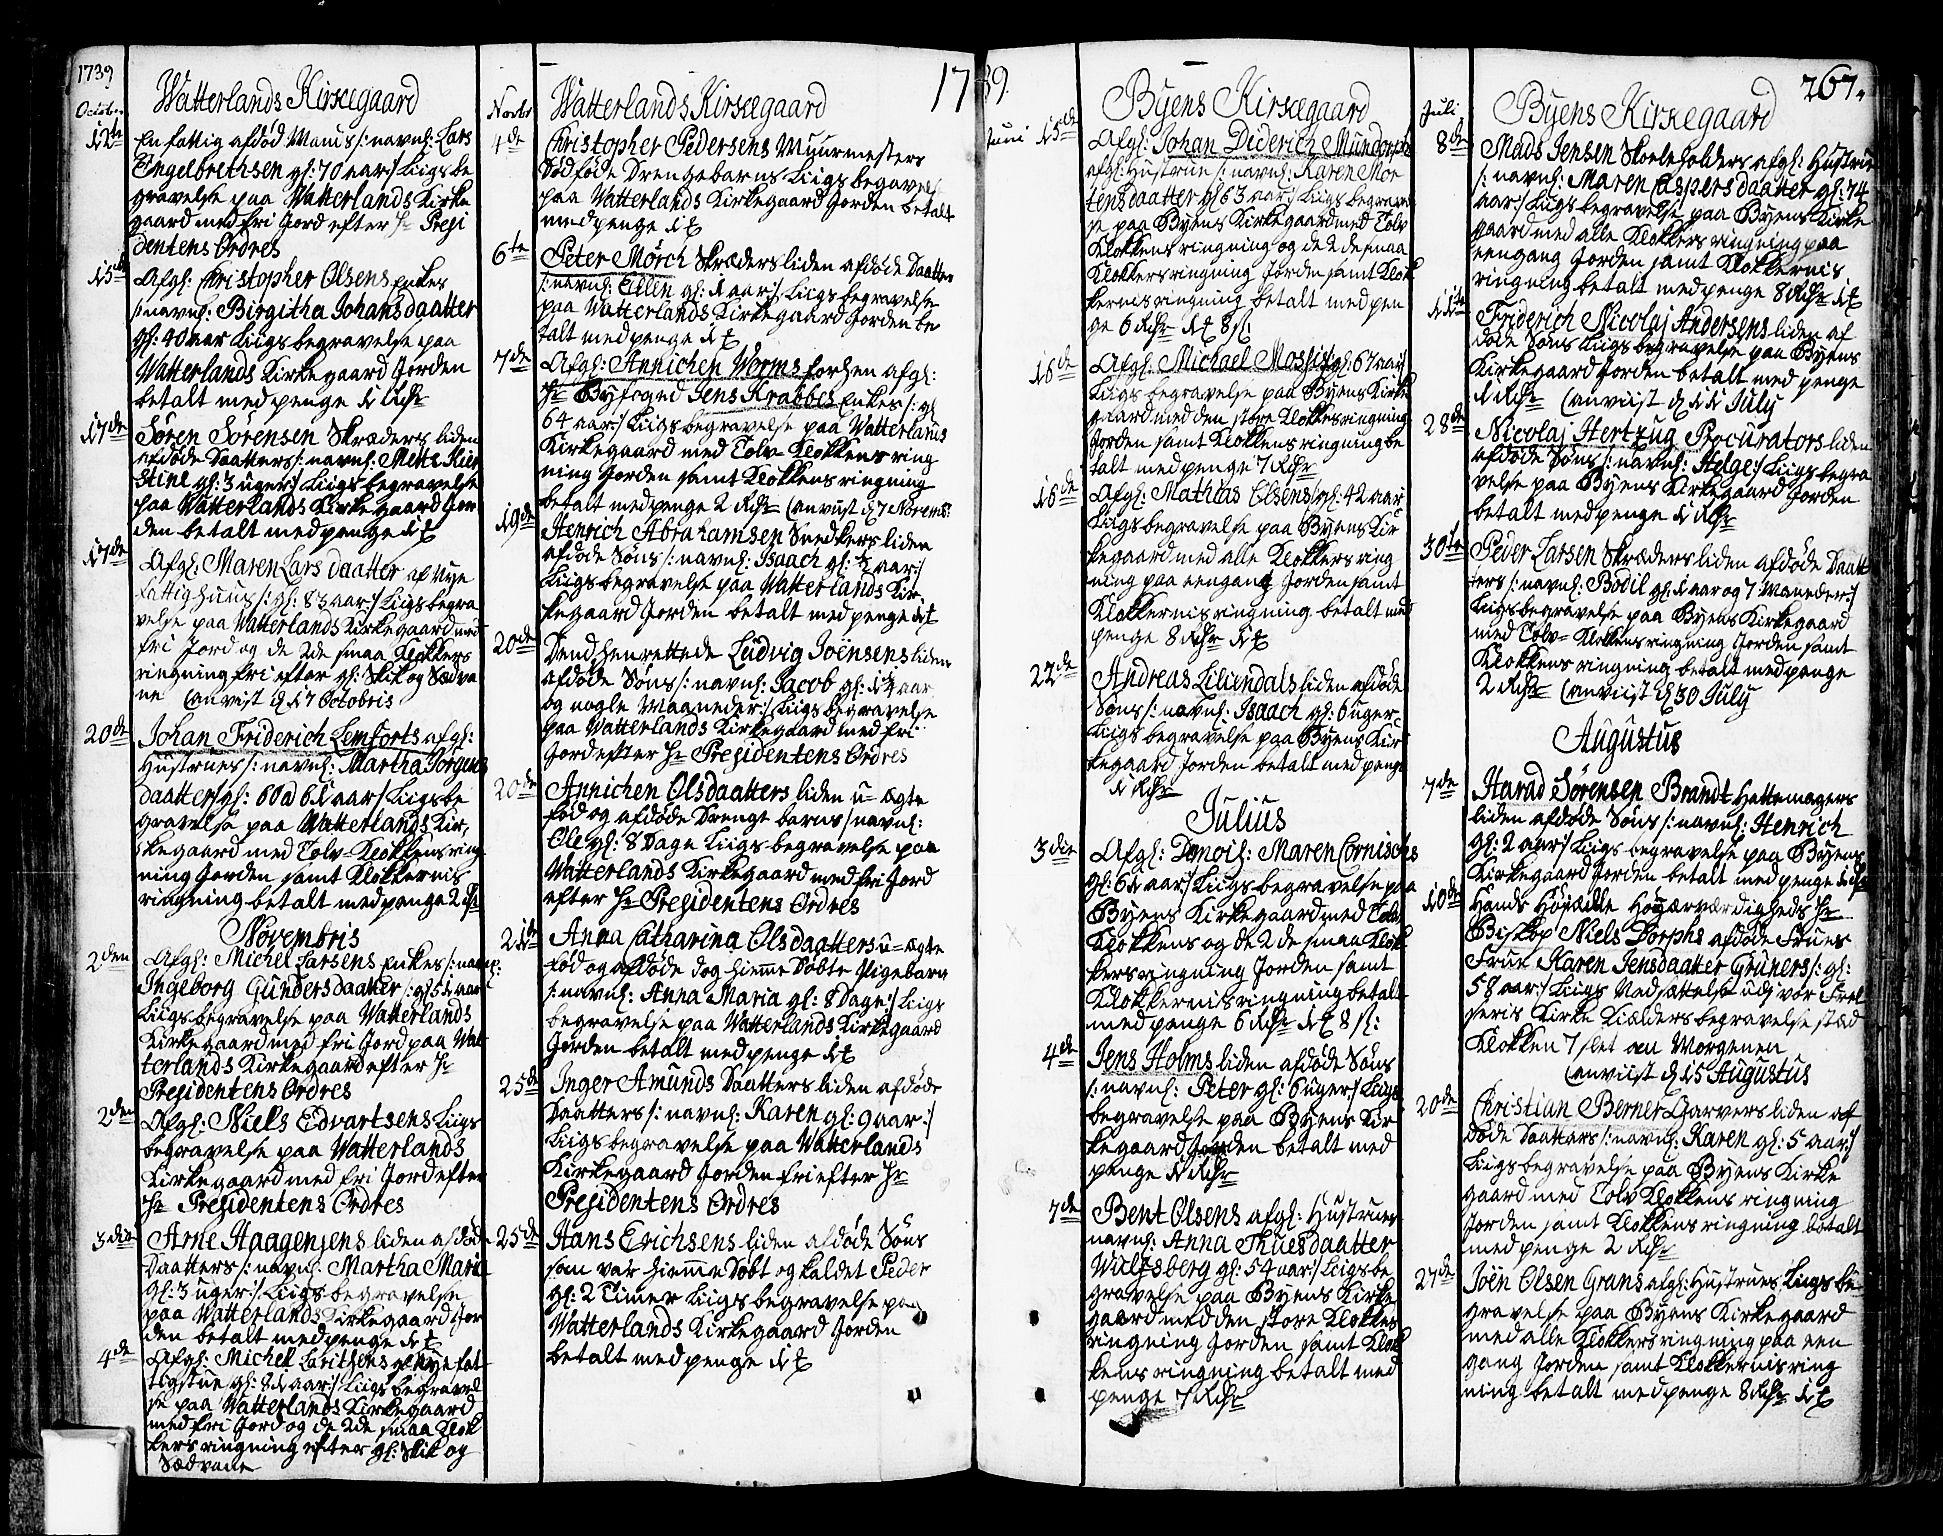 1739
Octobr
Watterlands Kirkegaard
12te
En fattig afdød Mands /: navnl: Lars
Engelbrethsen gl: 70 aar:/ Liigs be
gravelse paa Watterlands Kirke
gaard med fri Jord efter Hr Presi
dentens Ordres
15de
Afgl: Christopher Olsens Enkes
/: navnl: Birgitha Johansdaatter
gl: 40 aar Liigs begravelse paa
Watterlands Kirkegaard Jorden
betalt med penge 1 Rdhr
17de
Søren Sørensen Skræders liden
afdøde Daatters /: navnl: Mette Kier
stine gl: 3 uger:/ Liigs begravelse
paa Watterlands Kirkegaard Jor
den betalt med penge
17de
Afgl: Maren Lars daatter af Nye
fattighuus /: gl: 83 aar:/ Liigs begra
velse paa Watterlands Kirkegaard med
fri Jord og de 2de smaa Klokkers
ringning fri efter gl: Skik og Sædva
ne (anvist d 17 Octobris
20de
Johan Friderich Lemforts afgl:
Hustrues /: navnl: Martha Jørgens
daatter gl: 60 a 61 aar:/ Liigs be
gravelse paa Watterlands Kir,
kegaard med Tolv Klokkens ring
ning Jorden samt Klokkernis
ringning betalt med penge 2 Rdr
Novembris
2den
Afgl: Michel Larsens Enkes /: navnl:
Ingeborg Gundersdaatter gl: 51 aar
Liigs begravelse paa Watterlands
Kirkegaard med fri Jord paa Wat
terlands Kirkegaard efter Hr
Presidentens Ordres
2den
Afgl: Niels Edvartsens Liigs
begravelse paa Watterlands
Kirkegaard med fri Jord efter
Hr Presidentens Ordres
3die
Arne Haagensens liden afdøde
Daatters /: navnl: Martha Marie
gl: 3 uger:/ Liigs begravelse
paa Watterlands Kirkegaard Jor
den betalt med penge
4de
Afgl: Michel Lavitsens af Nye fat
tigstue gl: 81 aar:/ Liigs begravel
se paa Watterlands Kirkegaard
med fri Jord og de 2de smaa Klok
kers ringning efter gl: Skik og
Sædvane
Novbr
17
Watterlands Kirkegaard
4de
Christopher Pedersens Muurmesters
Dødføde Drengebarns Liigs begravelse
paa Watterlands Kirkegaard Jorden betalt
med penge
6te
Peter Mörch Skræders liden afdøde Daatter
/: navnl: Ellen gl: 1 aar:/ Liigs begravelse
paa Watterlands Kirkegaard Jorden be
talt med penge
7de
Afgl: Annichen Worms forhen afgl:
Hr Byfoged Jens Krabbes Enkes /: gl
64 aar:/ Liigs begravelse paa Watterlands
Kirkegaard med Tolv Klokkens ring
ning Jorden samt Klokkens ringning
betalt med penge 2 Rdr (anviist d 7 Novemb:
19de
Henrich Abrahamsen Snedkers liden
afdøde Søns /: navnl: Isaach gl: ½ aar:/
Liigs begravelse paa Watterlands Kir
kegaard Jorden betalt med penge
20de
Dend henrettede Ludvig Joënsens liden
afdøde Søns /: navnl: Jacob gl: aar
og nogle Maaneder:/ Liigs begravelse
paa Watterlands Kirkegaard med fri
Jord efter Hr Presidentens Ordres
20de
Annichen Olsdaatters liden u=ægte
fød og afdøde Drenge barns /: navnl:
Ole gl: 8 Dage Liigs begravelse paa
Watterlands Kirkegaard med fri Jord
efter Hr Presidentens Ordres
21de
Anna Catharina Olsdaatters u=ægte
fød og afdøde dog hieme Døbte Pigebarn
/: navnl: Anna Maria gl: 8 Dage:/ Liigs
begravelse paa Watterlands Kirkegaard
Jorden betalt med penge
25de
Inger Amunds Daatters liden afdøde
Daatters /: navnl: Karen gl: 9 aar:/
Liigs begravelse paa Watterlands
Kirkegaard Jorden fri efter Hr
Presidentens Ordres
25de
Hans Erichsens liden afdøde Søns
som var hieme Døbt og kaldet Peder
gl: 2 Timer Liigs begravelse paa
Watterlands Kirkegaard Jorden
betalt med penge
39.
Byens Kirkegaard
Juni 15de
Afgl: Johan Diderich Mundorphs
afgl: Hustrue /: navnl: Karen Mor
tensdaatter gl 63 aar:/ Liigs begravel
se paa Byens Kirkegaard med Tolv
Klokkens ringning og de 2de smaa
Klokkers ringning Jorden samt Klok
kernis ringning betalt med pen
ge 6 Rdhr 8 sl:
16de
Afgl: Michael Mossis gl: 67 aar
Liigs begravelse paa Byens Kirke
gaard med den store Klokkes ringning
Jorden samt Klokkens ringning be
talt med penge 7 Rdhr
16de
Afgl: Mathias Olsens gl: 42 aar
Liigs begravelse paa Byens Kir
kegaard med alle Klokkers ring
ning paa eengang Jorden samt
Klokkernis ringning betalt med
penge 8 Rdhr
22de
Andreas Liliendals liden afdøde
Søns /: navnl: Isaach gl: 6 uger
Liigs begravelse paa Byens Kir
kegaard Jorden betalt med penge
1 Rdhr
Julius
3die
Afgl: Dmoil: Maren Cornisches
gl: 61 aar:/ Liigs begravelse paa
Byens Kirkegaard med Tolv
Klokkens og de 2de smaa Klok
kers ringning Jorden samt
Klokkernis ringning betalt
med penge 6 Rdhr 8 sl:
4de
Jens Holms liden afdøde Søns
/: navnl: Peter gl: 6 uger:/ Liigs
begravelse paa Byens Kir
kegaard Jorden betalt med
penge 1 Rdhr
7de
Bent Olsens afgl: Hustrues
navnl: Anna Thuesdaatter
gl: 54 aar:/ Liigs be
gravelse paa Byens Kirke
gaard med den store Klokkes
ringning Jorden samt Klok
kens ringning betalt med
penge 7 Rdhr
267.
Juli
Byens Kirkegaard
8de
Mads Jensen Skoleholders afgl: Hustrue
/: navnl: Maren Caspersdaatter gl: 74
aar:/ Liigs begravelse paa Byens Kirke
gaard med alle Klokkers ringning paa
eengang Jorden samt Klokkernis
ringning betalt med penge 8 Rdhr
11te
Friderich Nicolaj Andersens liden af
døde Søns Liigs begravelse paa Byens
Kirkegaard Jorden betalt med penge
1 Rdhr (anviist d 11 July
28de
Nicolaj Hertzug Procurators liden
afdøde Søns /: navnl: Helge:/ Liigs begra
velse paa Byens Kirkegaard Jorden
betalt med penge 1 Rdhr
30te
Peder Larsen Skræders liden afdøde Daatt
ers /: navnl: Bodil gl: 1 aar og 7 Maaneder:/
Liigs begravelse paa Byens Kirkegaard
med Tolv=Klokkens ringning Jorden samt
Klokkens ringning betalt med penge
2 Rdhr (anviist d 30 July
Augustus
7de
Harad Sørensen Brandt Hattemagers
liden afdøde Søns /: navnl: Henrich
gl: 2 aar:/ Liigs begravelse paa Byens
Kirkegaard Jorden betalt med penge 1 Rdhr
10de
Hands Höyædle Höyærværdigheds Hr
Biskop Niels Dorphs afdøde Frues
Frue Karen Jensdaatter Grüners /: gl:
58 aar:/ Liigs Nedsættelse udj vor Frel
seris Kirke Kiælders begravelse stæd
Klokken 7 slet om Morgenen
(anviist d 15 Augustus
20de
Christian Berner Garvers liden af
døde Daatters /: navnl: Karen gl: 5 aar:/
Liigs begravelse paa Byens Kirke
gaard med Tolv Klokkens ringning
Jorden samt Klokkens ringning betalt
med penge 2 Rdhr
27de
Joën Olsen Grans afgl: Hustrues Liigs be
gravelse paa Byens Kirkegaard
med alle Klokkers ringning paa een
gang Jorden samt Klokkernis ring
ning betalt med penge 8 Rdhr